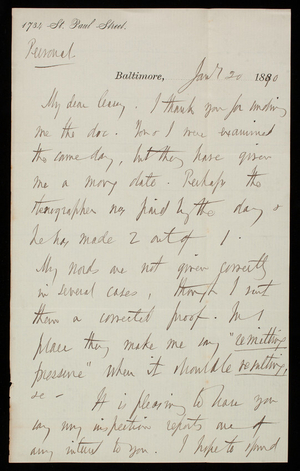 1733 St. Paul Street.
Personal
Baltimore, Jan'y 20 1890
My dear Casey. I thank you for sending
me the doc. You & I were examined
the same day, but they have given
me a wrong date. Perhaps the
stenographer was paid by the day &
he has made 2 out of 1.
My words are not given correctly
in several cases, though I sent
them a corrected proof. In 1
place they make me say "remitting
pressure" when it should be resulting,
&c — It is pleasing to have you
say my inspection reports are of
any interest to you. I hope to spend